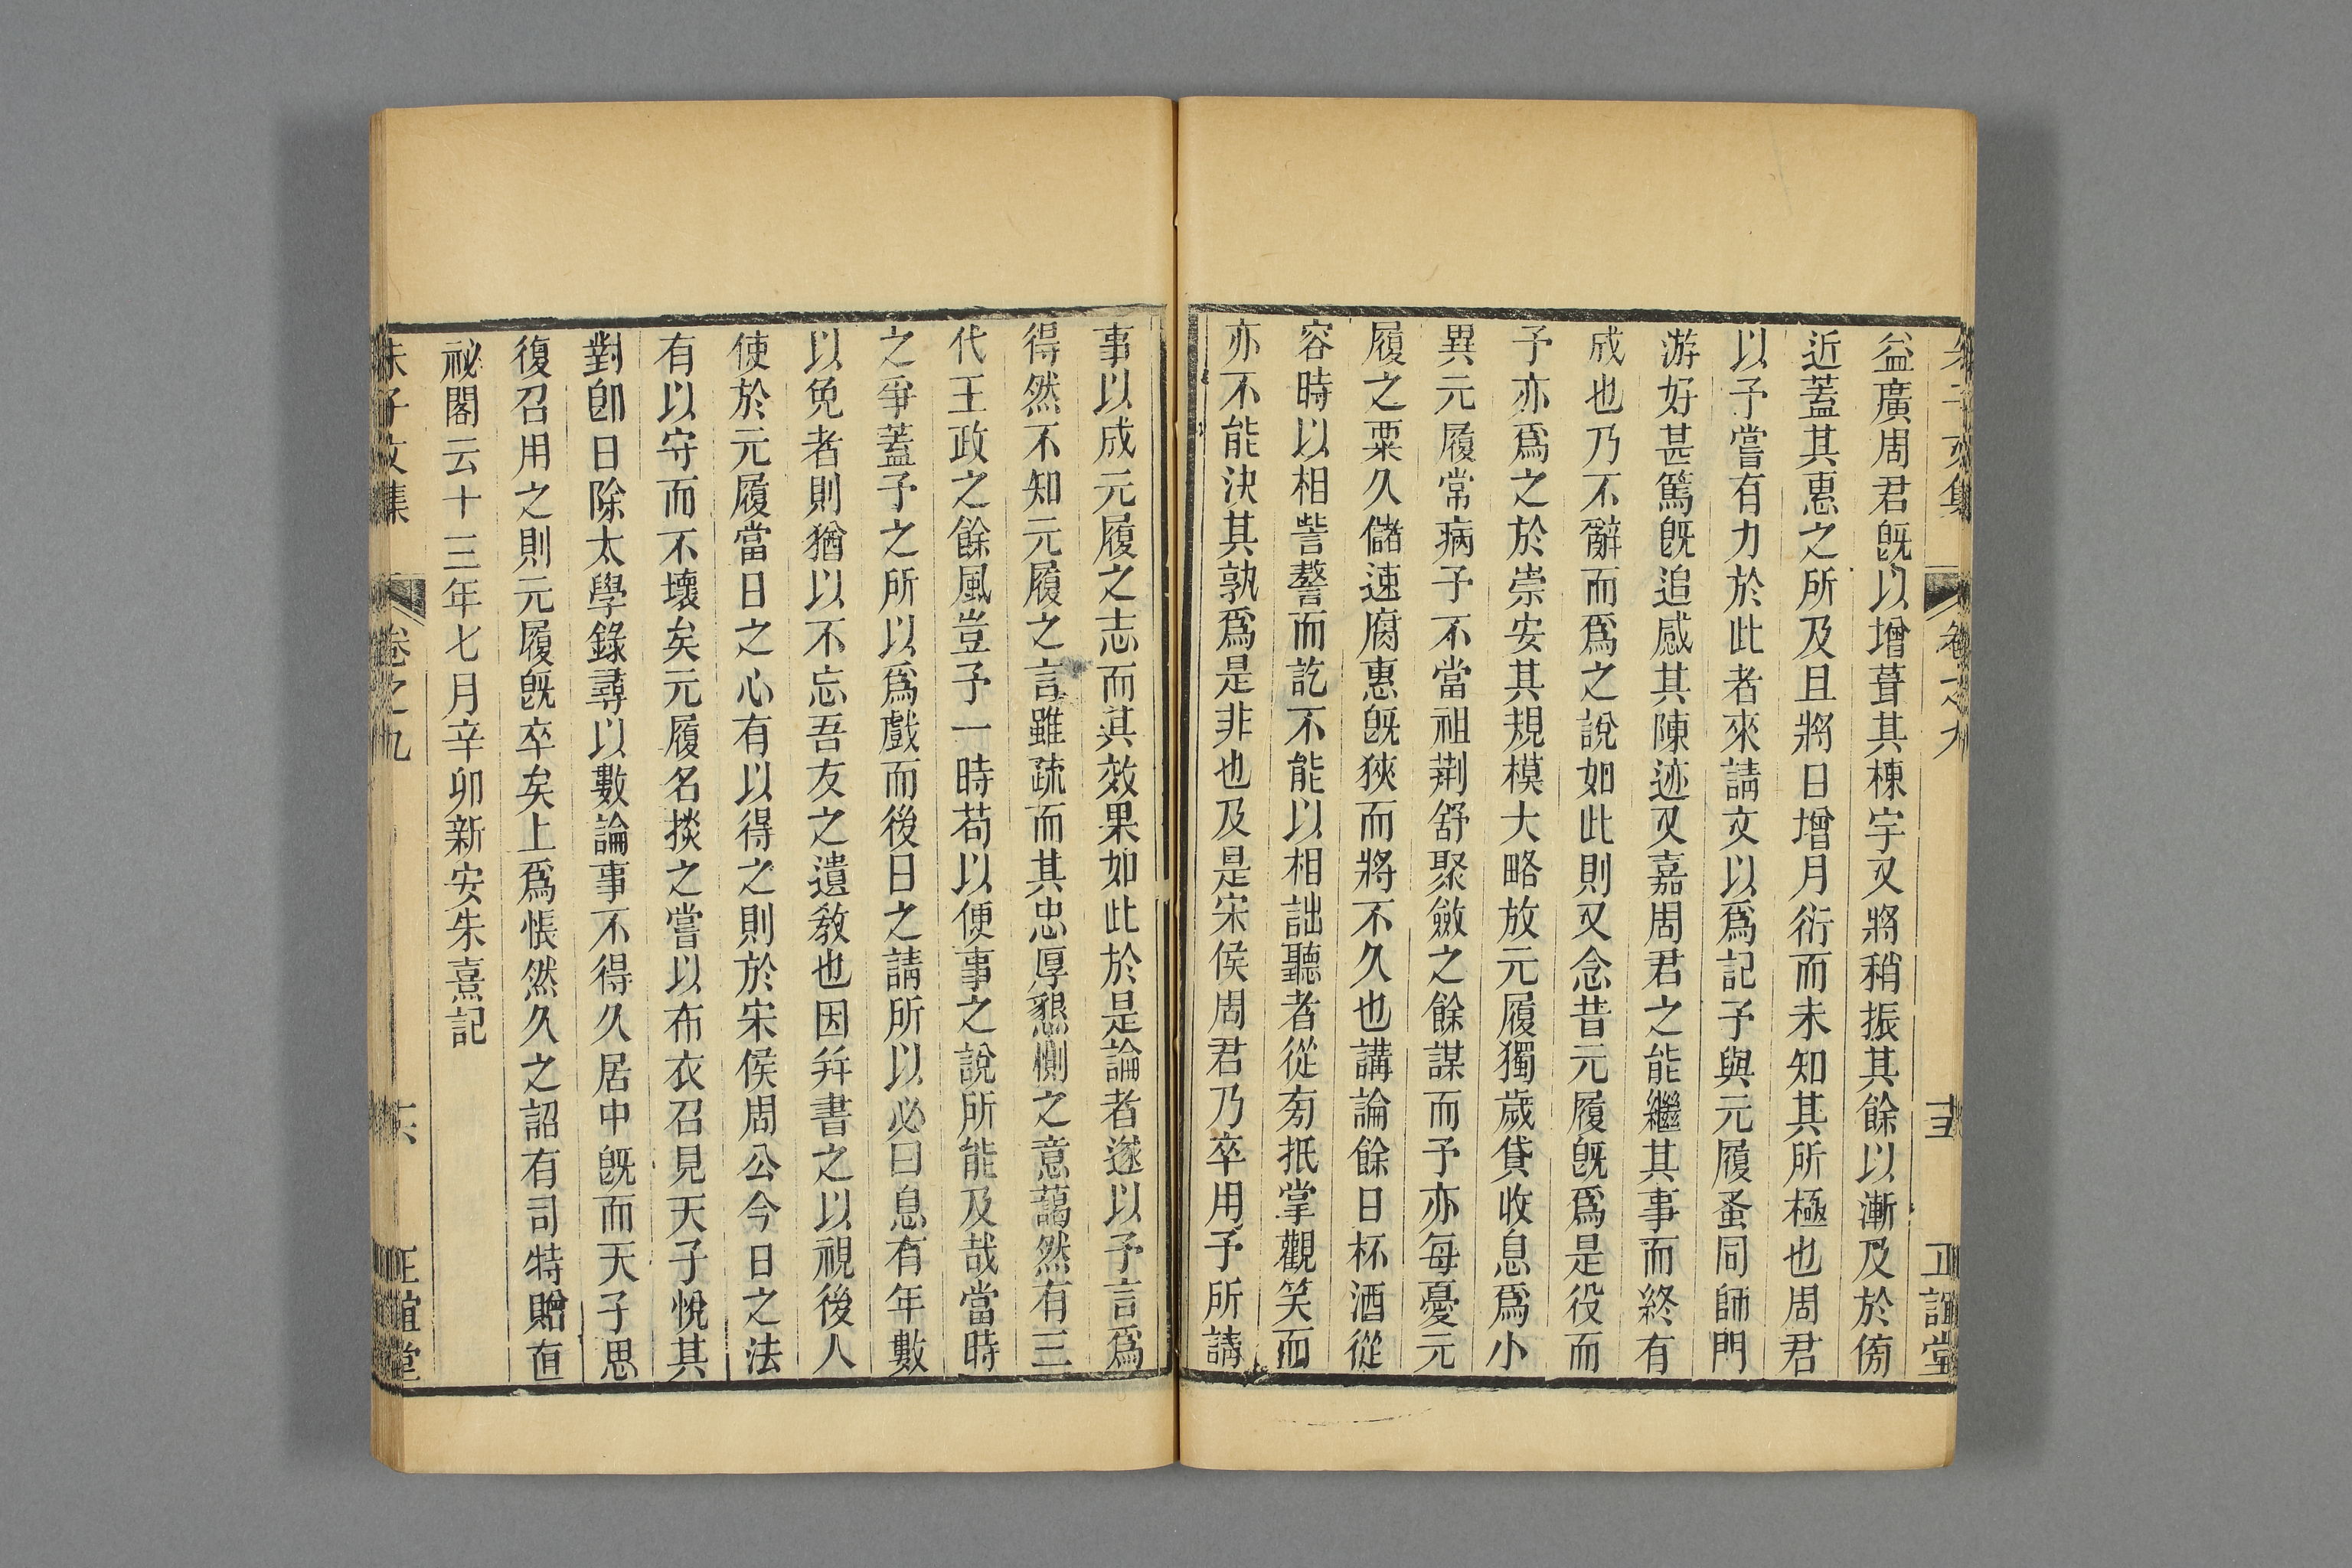 益廣周君旣以增葺其棟宇又將稍振其餘以漸及於傍
近蓋其惠之所及且將日增月衍而未知其所極也周君
以予嘗有力於此者來請文以爲記予與元履蚤同師門
游好甚篤旣追感其陳迹又嘉周君之能繼其事而終有
成也乃不辭而爲之說如此則又念昔元履旣爲是役而
予亦爲之於崇安其規模大略放元履獨歲貸收息爲小
異元履常病予不當祖荆舒聚斂之餘謀而予亦每憂元
履之粟久儲速腐惠旣狹而將不久也講論餘日杯酒從
容時以相訾謷而訖不能以相詘聽者從旁抵掌觀笑而
亦不能決其孰爲是非也及是宋侯周君乃卒用予所請
事以成元履之志而其效果如此於是論者遂以予言爲
得然不知元履之言雖疏而其忠厚懇惻之意藹然有三
代王政之餘風豈予一時苟以便事之說所能及哉當時
之爭蓋予之所以爲戲而後日之請所以必曰息有年數
以免者則猶以不忘吾友之遺敎也因幷書之以視後人
使於元履當日之心有以得之則於宋侯周公今日之法
有以守而不壞矣元履名掞之嘗以布衣召見天子悅其
對卽日除太學錄尋以數論事不得久居中旣而天子思
復召用之則元履旣卒矣上爲悵然久之詔有司特贈直
祕閣云十三年七月辛卯新安朱熹記
朱子文集
卷之九
十六
正誼堂